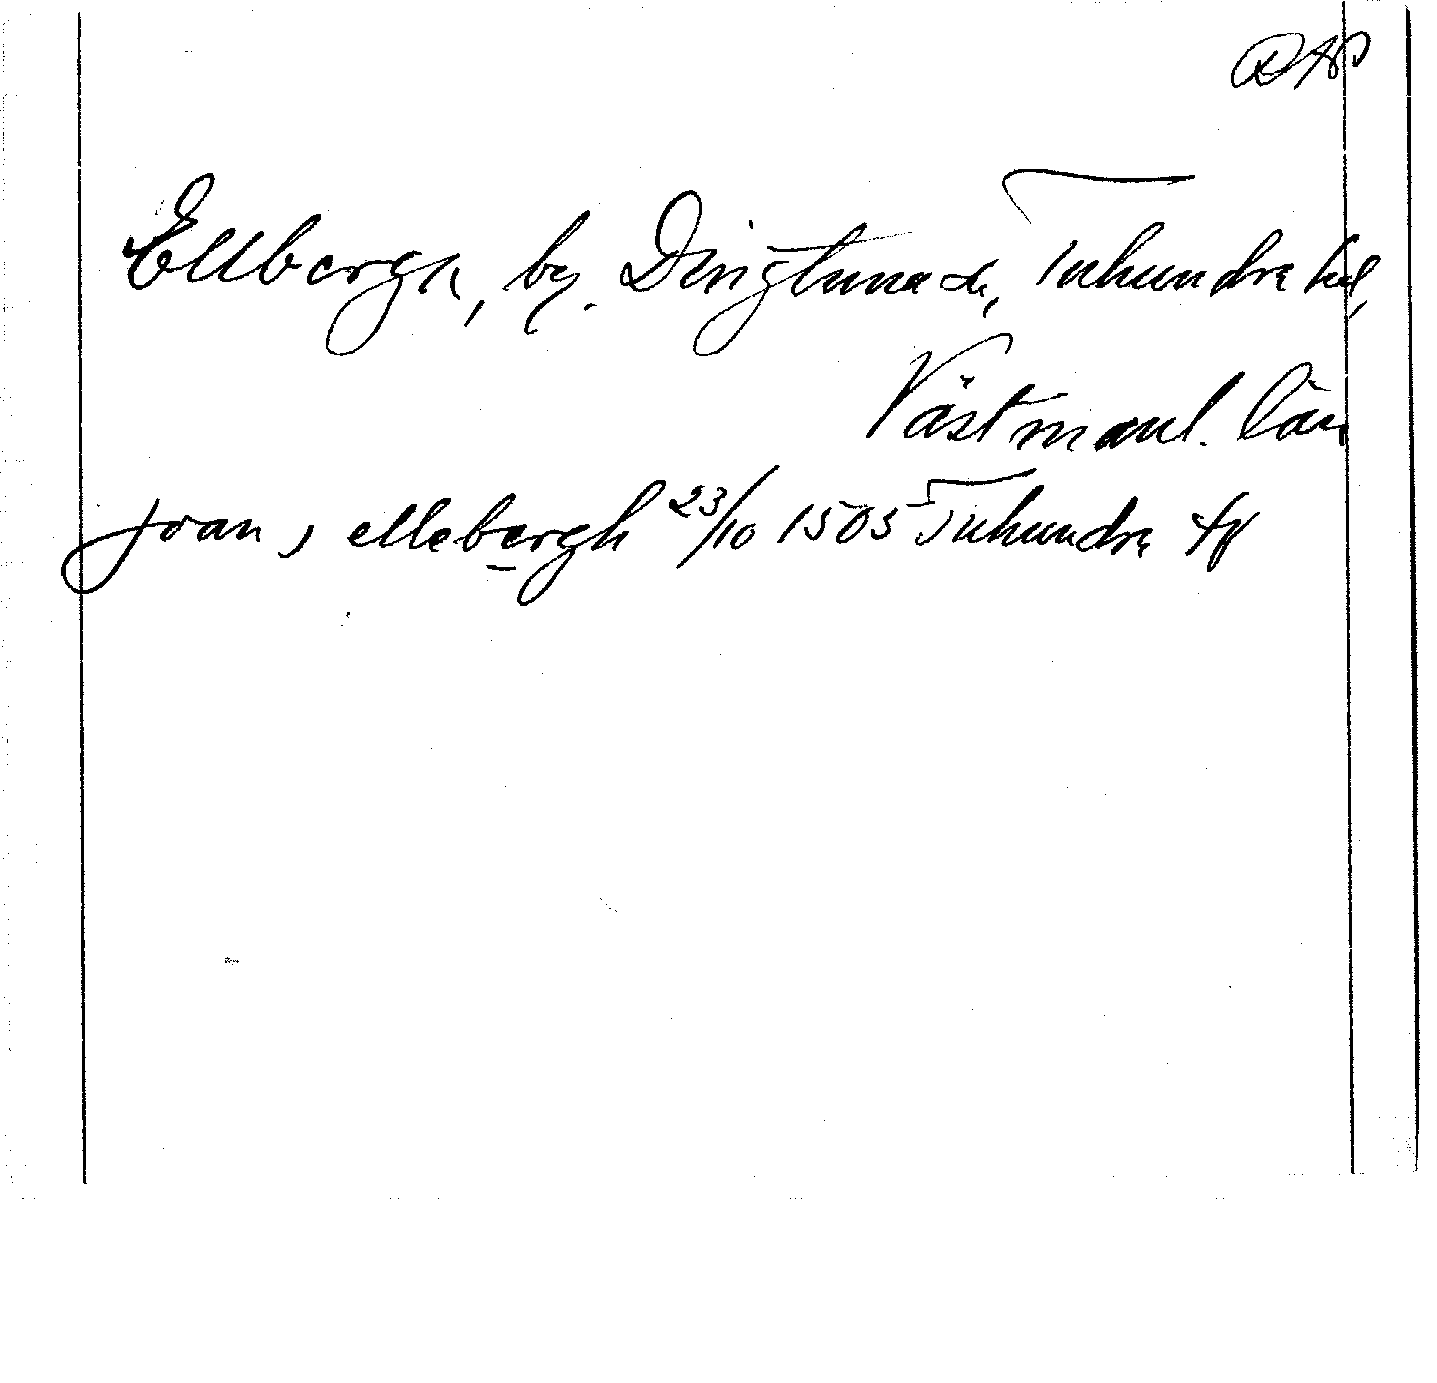 Ellberga, by. Dingtuna sn, Tuhundra hd,
Västmanl. län
joan j ellebergh 23/10 1505 Tuhundra